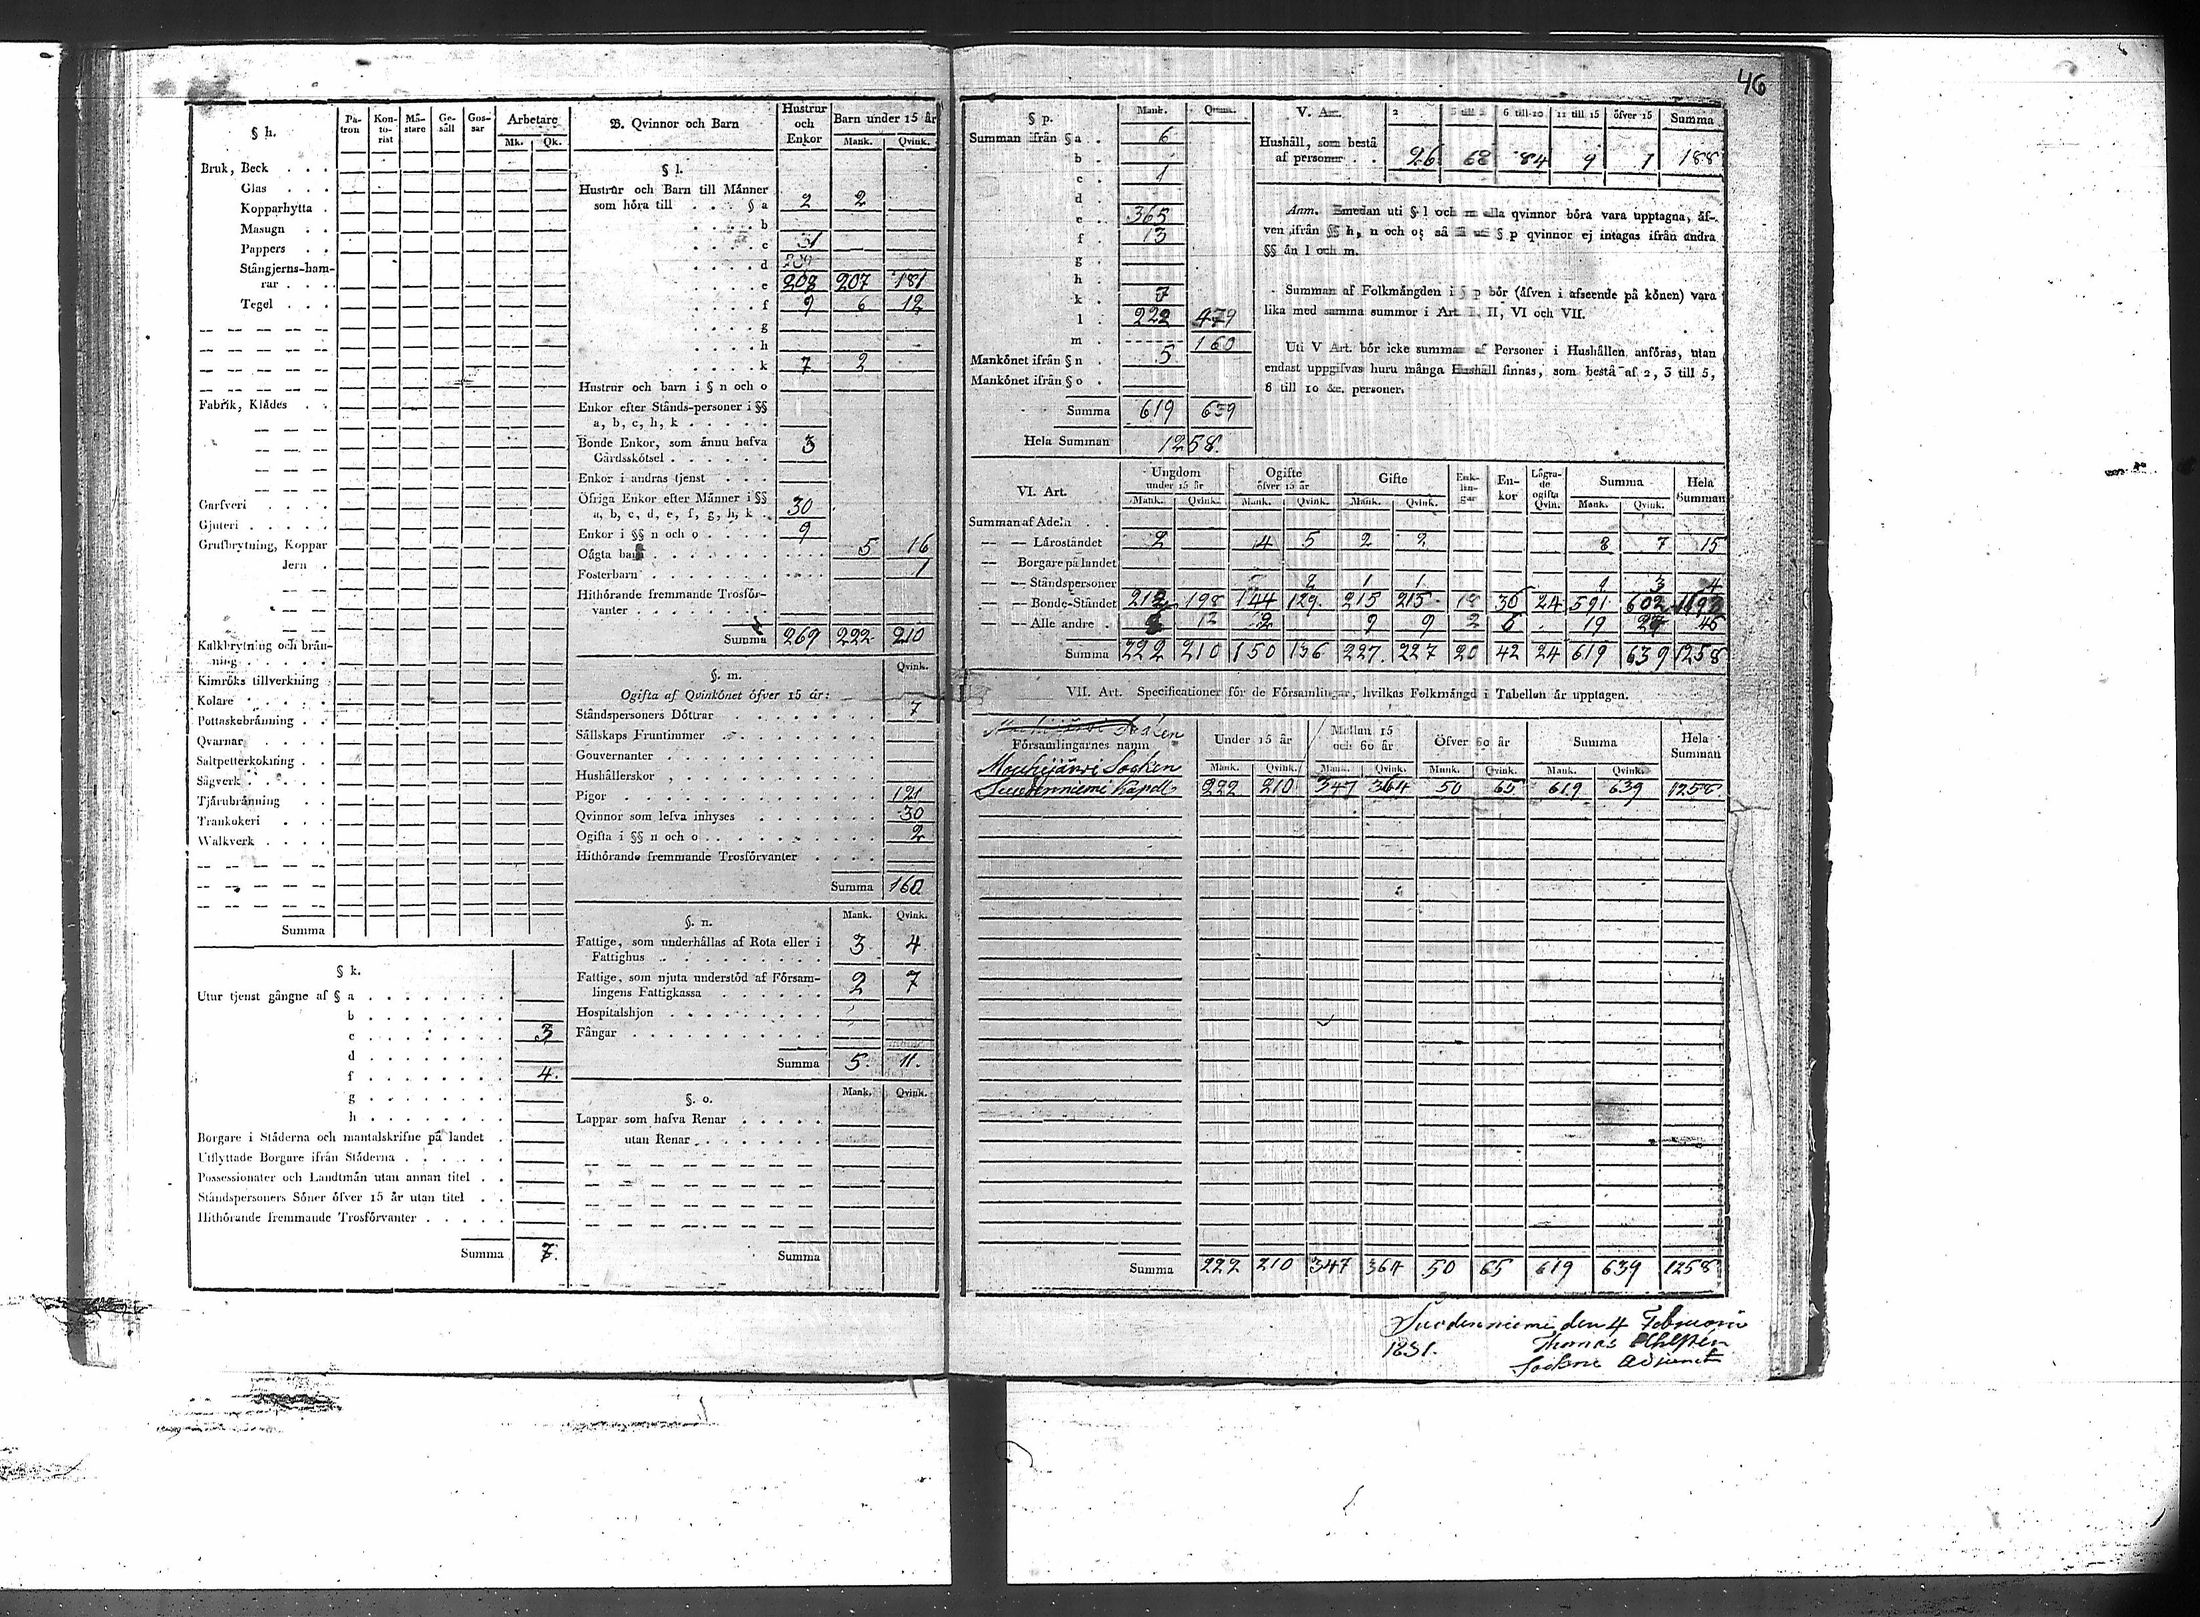 46
§ h.
Pa-tron Kon-to-rist Mä-stare Ge-säll Gos-sar Arbetare
Mk. Qk.
Bruk, Beck . . .
Glas . . .
Kopparhytta .
Masugn . .
Pappers . .
Stångjerns-ham-
rar . . .
Tegel . . .
Fabrik, Klädes . .
Garfveri . . . .
Gjuteri . . . . .
Grufbrytning, Koppar
Jern .
Kalkbrytning och brän-
ning . . . . .
Kimröks tillverkning .
Kolare . . . . .
Pottaskebränning . .
Qvarnar . . . .
Saltpetterkokning . .
Sågverk . . . .
Tjärubränning . .
Trankokeri . . .
Walkverk . . . .
Summa
§ k.
Utur tjenst gångne af § a . . . . . . . .
b . . . . . . . .
c . . . . . . . . 3
d . . . . . . . .
f . . . . . . . . 4.
g . . . . . . . .
h . . . . . . . .
Borgare i Städerna och mantalskrifne på landet .
Utflyttade Borgare ifrån Städerna . . . . . .
Possessionater och Landtmän utan annan titel . .
Ståndspersoners Söner öfver 15 år utan titel . .
Hithörande fremmande Trosförvanter . . . . .
Summa 7.
B. Qvinnor och Barn
Hustrur och Enkor
Barn under 15 år
Mank. Qvink.
§ l.
Hustrur och Barn till Männer
som höra till . . . § a 2 2
. . . . b
. . . . c
. . . . d
. . . . e 208 207 181
. . . . f 9 6 12
. . . . g
. . . . h
. . . . k 7 2
Hustrur och barn i § n och o
Enkor efter Stånds-personer i §§
a, b, c, h, k . . . . .
Bonde Enkor, som ännu hafva
Gårdsskötsel . . . . . . 3
Enkor i andras tjenst . . .
Öfriga Enkor efter Männer i §§
a, b, c, d, e, f, g, h, k . 30
Enkor i §§ n och o . . . . 9
Oägta barn . . . . . . . 5 16
Fosterbarn . . . . . . . 1
Hithörande fremmande Trosför-
vanter . . . . . . . .
Summa 269 222 210
§. m.
Qvink.
Ogifta af Qvinkönet öfver 15 år:
Ståndspersoners Döttrar . . . . . . . . 7
Sällskaps Fruntimmer . . . . . . . .
Gouvernanter . . . . . . . . . . .
Hushållerskor . . . . . . . . . . .
Pigor . . . . . . . . . . . . . 121
Qvinnor som lefva inhyses . . . . . . . 30
Ogifta i §§ n och o . . . . . . . . . 2
Hithörande fremmande Trosförvanter . . . .
Summa 160
§. n.
Mank. Qvink.
Fattige, som underhållas af Rota eller i
Fattighus . . . . . . . . . . 3 4
Fattige, som njuta understöd af Försam-
lingens Fattigkassa . . . . . . 2 7
Hospitalshjon . . . . . . . . .
Fångar . . . . . . . . . . .
Summa 5. 11.
§. o.
Mank. Qvink.
Lappar som hafva Renar . . . . .
utan Renar . . . . . . .
Summa
§ p.
Mank. Qvink.
Summan ifrån § a . . 6
b .
c . 1
d
e . 365
f . 13
g .
h .
k . 7
l . 222 479
m . 160
Mankönet ifrån § n . 5
Mankönet ifrån § o .
Summa 619 639
Hela Summan 1258.
V. Art. 2 3 till 5 6 till 10 11 till 15 öfver 15 Summa
Hushåll, som bestå
af personer . . 26 68 84 9 1 188
Anm. Emedan uti § l och m alla qvinnor böra vara upptagna, äf-
ven ifrån §§ h, n och o; så få uti § p qvinnor ej intagas ifrån andra
§§ än l och m.
Summan af Folkmängden i § p bör (äfven i afseende på könen) vara
lika med samma summor i Art. I, II, VI och VII.
Uti V Art. bör icke summan af Personer i Hushållen anföras, utan
endast uppgifvas huru många Hushåll finnas, som bestå af 2, 3 till 5,
6 till 10 &c. personer.
VI. Art.
Ungdom under 15 år Ogifte öfver 15 år Gifte Enk-lin-gar En-kor Lägra-de ogifta Qvin. Summa Hela Summan
Mank. Qvink. Mank. Qvink. Mank. Qvink. Mank. Qvink.
Summan af Adeln . .
— — Läroståndet 2 4 5 2 2 8 7 15
— Borgare på landet
— — Ståndspersoner 2 1 1 1 3 4
— — Bonde-Ståndet 212 198 144 129. 215 215 18 36 24 591 602 1193
— — Alle andre . 12 2 9 9 2 6 19 27 46
Summa 222 210 150 136 227. 227 20 42 24 619 639 1258
VII. Art. Specificationer för de Församlingar, hvilkas Folkmängd i Tabellen är upptagen.
Församlingarnes namn Under 15 år Mellan 15 och 60 år Öfver 60 år Summa Hela Summan
Mank. Qvink. Mank. Qvink. Mank. Qvink. Mank. Qvink.
Mouhijärvi Socken
Suodenniemi Capell 222 210 347 364 50 65 619 639 1258.
Summa 222 210 347 364 50 65 619 639 1258
Suodenniemi den 4 Februarii
1831. Thomas
Sockne Adjunct